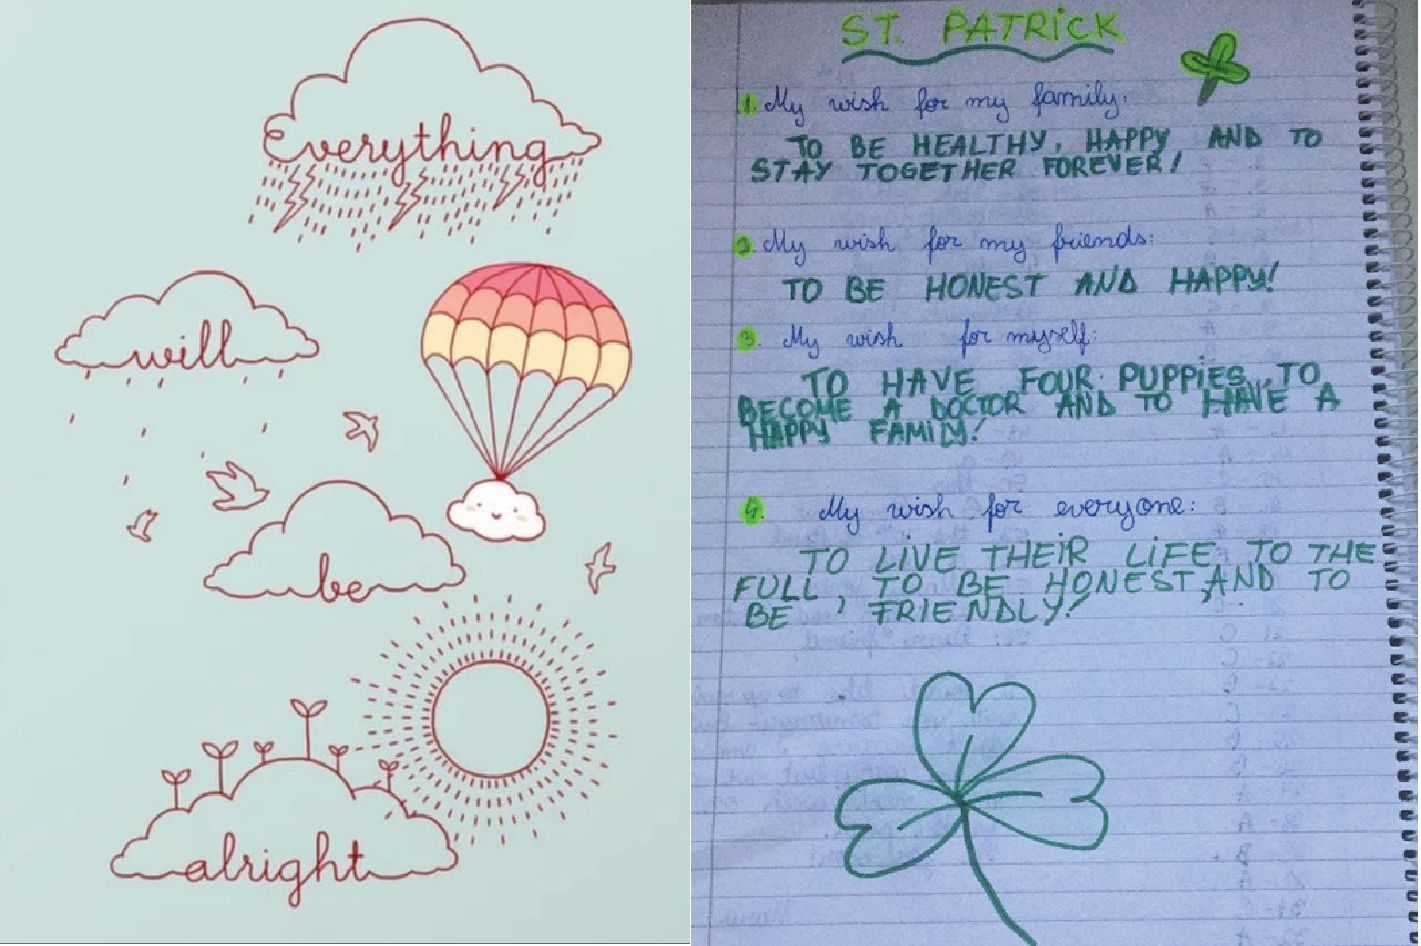 Everything
will
be
alright
ST. PATRICK
1. My wish for my family:
TO BE HEALTHY, HAPPY AND TO
STAY TOGETHER FOREVER!
2. My wish for my friends:
TO BE HONEST AND HAPPY!
3. My wish for myself:
TO HAVE FOUR PUPPIES, TO
BECOME A DOCTOR AND TO HAVE A
HAPPY FAMILY!
4. My wish for everyone:
TO LIVE THEIR LIFE TO THE
FULL, TO BE HONEST AND TO
BE FRIENDLY!